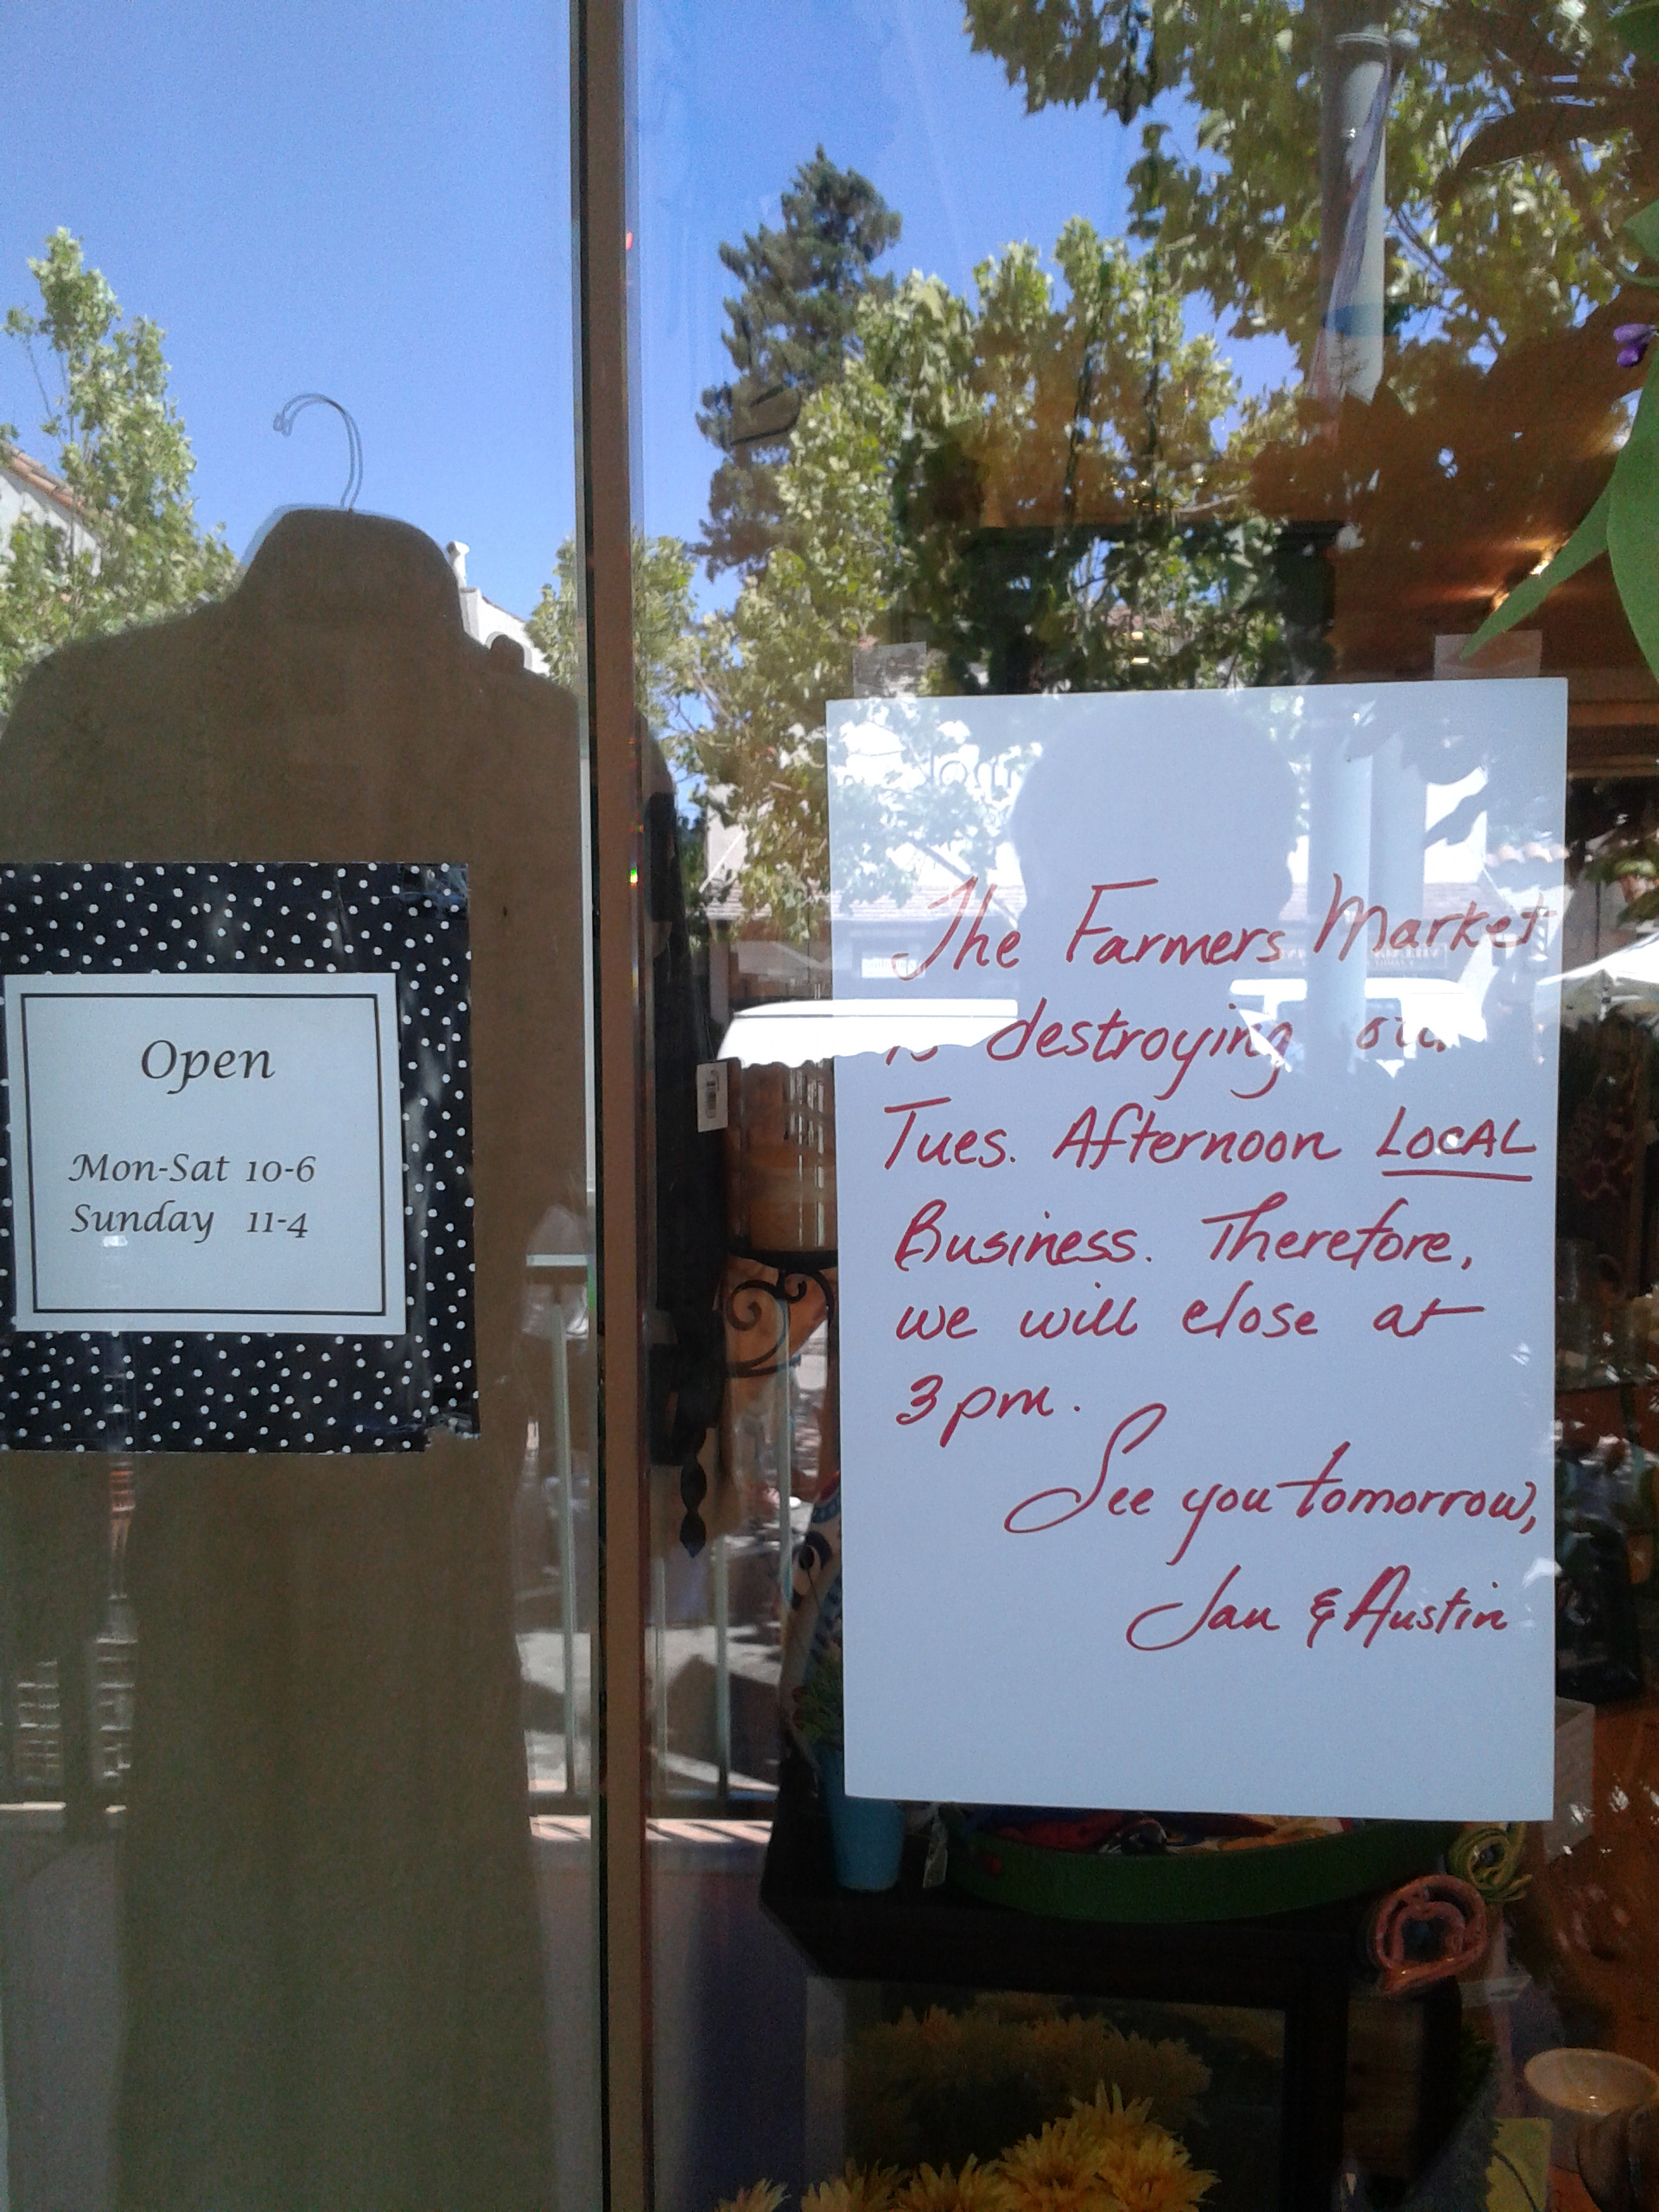 Open
Mon-Sat 10-6
Sunday 11-4
The Farmers Market
is destroying our
Tues. Afternoon LOCAL
Business. Therefore,
we will close at
3pm.
See you tomorrow,
Jan & Austin